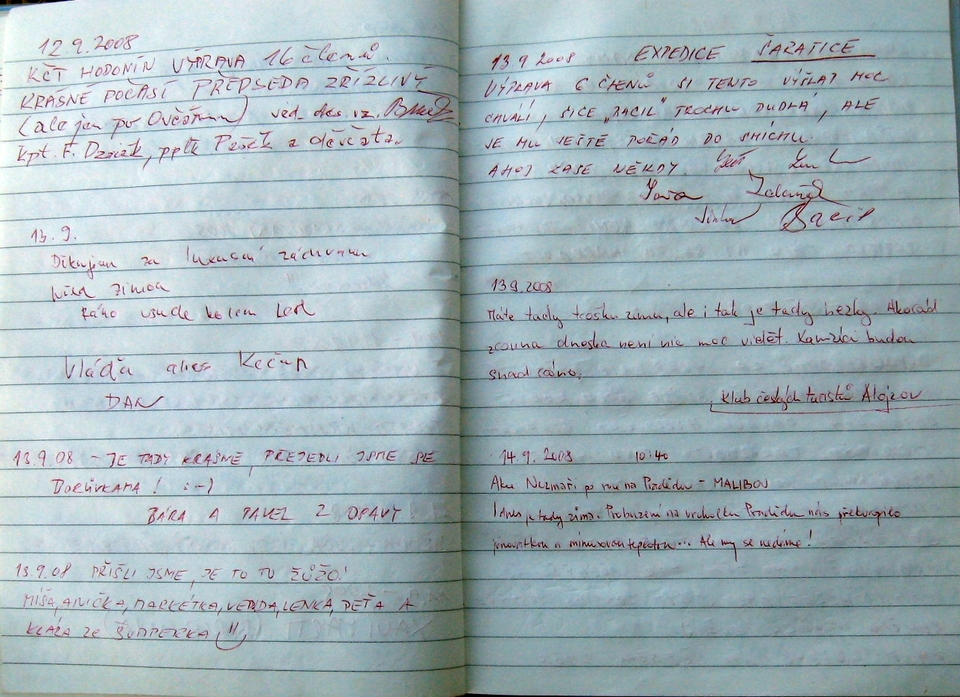 12.9.2008
KČT HODONÍN VÝPRAVA 16 členů.
KRÁSNÉ POČASÍ PŘEDSEDA ZŘÍZLIVÝ
(ale jen po Ovčárnu) ved.
Kpt. F. pplk a děvčata.
13.9.
Děkujem za luxusní záchranu
před zimou
Ráno všude kolem led
Vláďa alias
DAN
13.9.08 – JE TADY KRÁSNĚ, PŘEJEDLI JSME SE
BORŮVKAMA! :-)
BÁRA A PAVEL Z OPAVY
13.9.08 PŘIŠLI JSME, JE TO TU ŽŮŽO!
MÍŠA, ANIČKA, MARKÉTKA, VENDA, LENKA, PEŤA A
KLÁRA ZE ŠUMPERKA
13.9 2008 EXPEDICE ŠARATICE
VÝPRAVA 6 ČLENŮ SI TENTO VÝŠLAP MOC
CHVÁLÍ, SICE „BACIL" TROCHU PUDLÁ, ALE
JE MU JEŠTĚ POŘÁD DO SMÍCHU.
AHOJ ZASE NĚKDY.
Jana Zdeněk
Bacil
13.9.2008
Máte tady trošku zimu, ale i tak je tady hezky. Akorád
zrovna dneska není nic moc vidět. Kamzíci budou
snad ráno.
Klub českých turistů Alojzov
14.9.2008 10:40
Akce Nezmaři po roce na Pradědu – MALIBOU
I dnes je tady zima. Probuzení na vrcholku Pradědu nás překvapilo
jinovatkou a mínusovou teplotou... Ale my se nedáme!